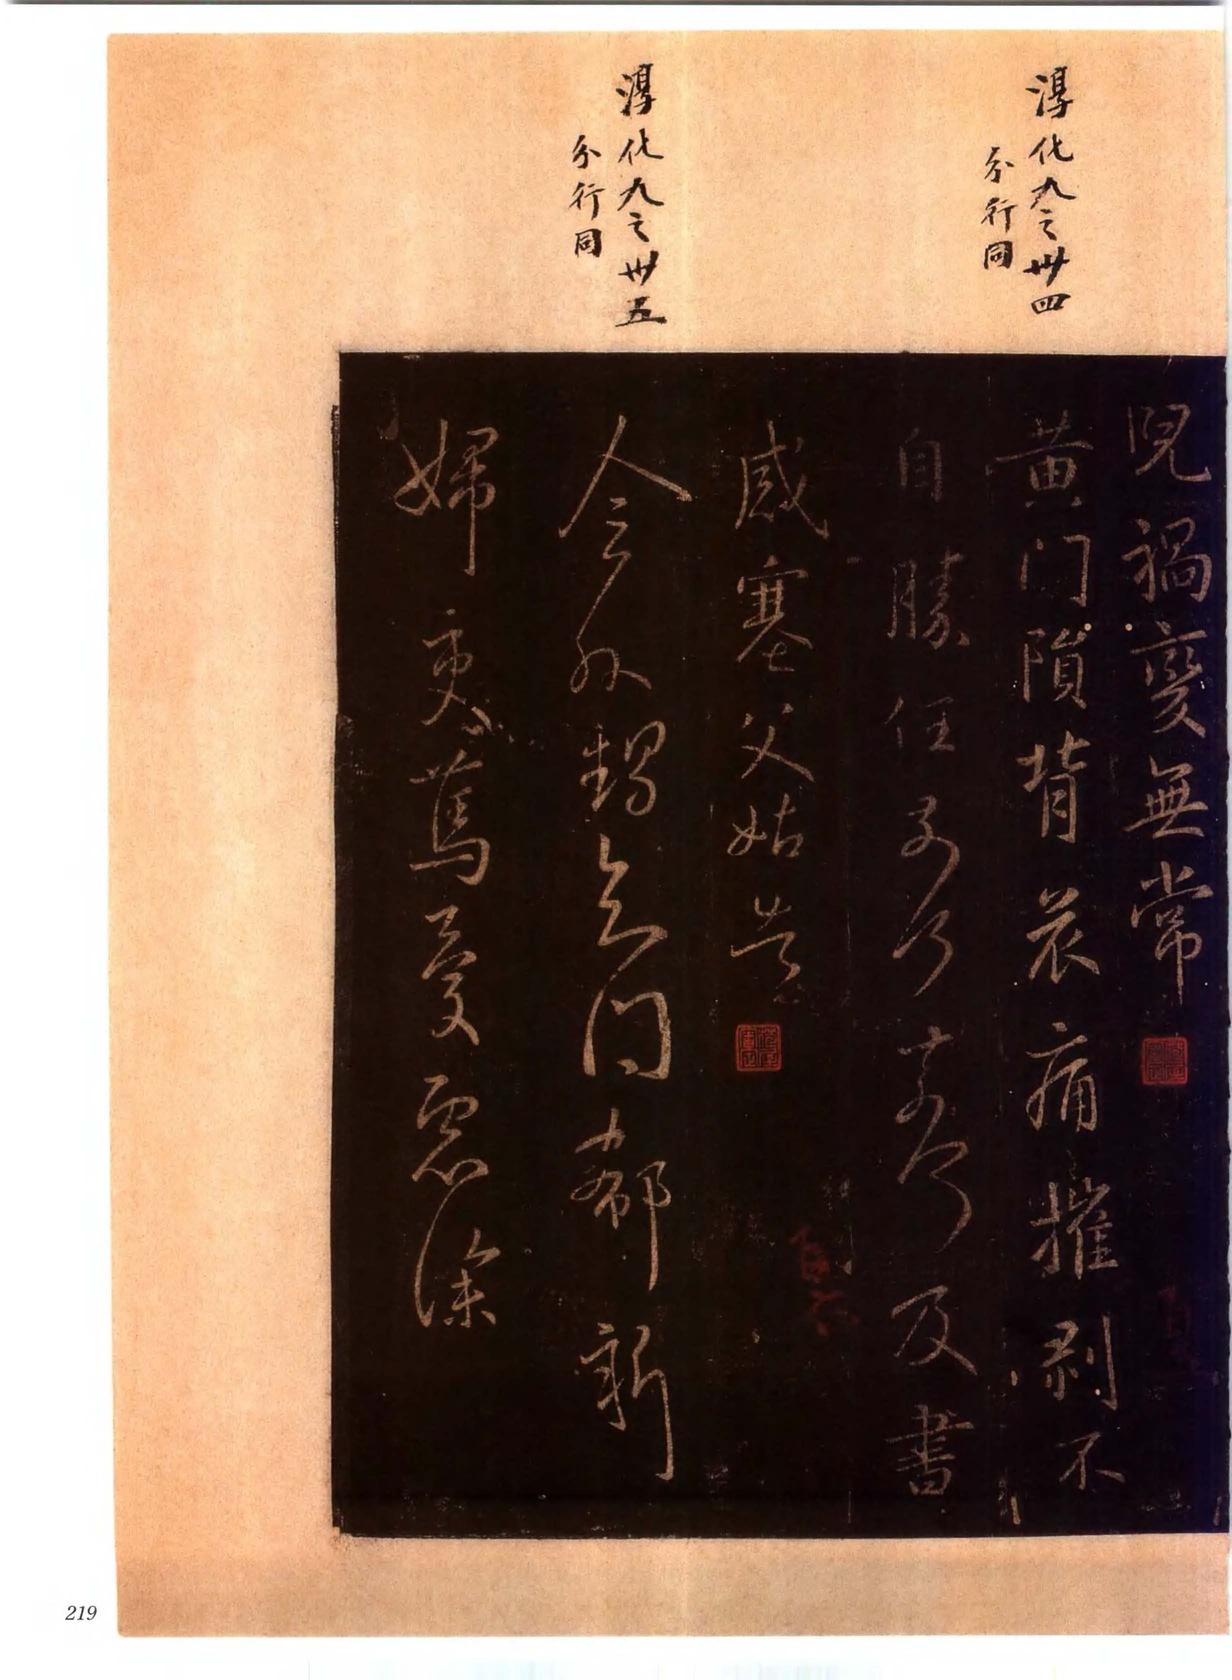 淳化九之卅四
分行同
淳化九之卅五
分行同
兒禍變無常
黃門隕背哀痛摧剝不
自勝任奈何奈何及書
感塞父姑告
今外甥知問郗新
婦更篤憂慮深
219